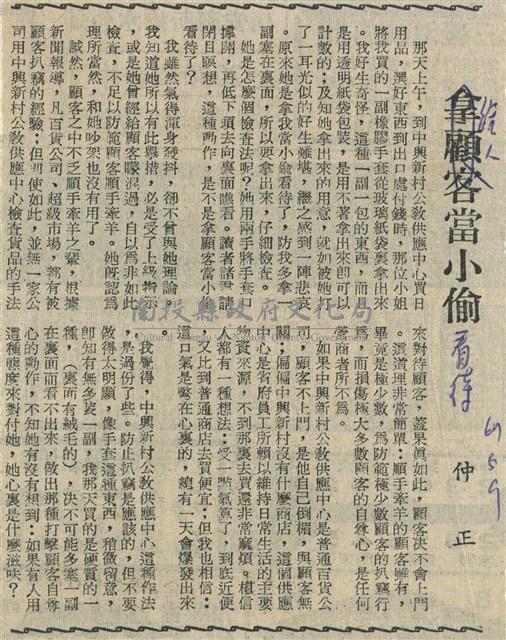 拿顧客當小偷
看待
仲正
那天上午，到中興新村公敎供應中心買日
用品，選好東西到出口處付錢時，那位小姐
將我買的一副橡膠手套從玻璃紙袋裏拿出來
。我好生奇怪，這種一副一包的東西，而且
是用透明紙袋包裝，是用不著拿出來卽可以
計數的；及知她拿出來的用意，就如被她打
了一耳光似的好生難堪，繼之感到一陣悲哀
。原來她是拿我當小偷看待了，防我多拿一
副塞在裏面，所以要拿出來，仔細檢查。
她是怎麼個檢查法呢？她用兩手將手套口
撐開，再低下頭去向裏面瞧看。讀者諸君請
閉目瞑想，這種動作，是不是拿顧客當小偷
看待了？
我雖然氣得渾身發抖，卻不曾與她理論。
我知道她所以有此舉措，必是受了上級指示
或是她曾經給顧客矇混過，自以爲非如此
檢查，不足以防範顧客順手牽羊。她旣認爲
理所當然，和她吵架也沒有用了。
誠然，顧客之中不乏順手牽羊之輩，根據
新聞報導，凡百貨公司、超級市場，都有被
顧客扒竊的經驗；但卽使如此，並無一家公
司用中興新村公敎供應中心檢查貨品的手法
來對待顧客，蓋果眞如此，顧客決不會上門
。這道理非常簡單：順手牽羊的顧客雖有，
畢竟是極少數，爲防範極少數顧客的扒竊行
爲，而損傷極大多數顧客的自尊心，是任何
營商者所不爲。
如果中興新村公敎供應中心是普通百貨公
司，顧客不上門，是他自己倒楣，與顧客無
關；偏偏中興新村沒有什麼商店，這個供應
中心是省府員工所賴以維持日常生活的主要
物資來源，不到那裏去買還非常麻煩。相信
人都有一種想法：受一點氣算了，到底近便
，又比到普通商店去買便宜；但我也相信：
這口氣是蹩在心裏的，總有一天會爆發出來
。
我覺得，中興新村公敎供應中心這種作法
，是過份了些。防止扒竊是應該的，但不要
做得太明顯，像手套這種東西，稍微留意，
卽知有無多裝一副，我那天買的是硬質的一
種，（裏面有絨毛的），決不可能多塞一副
在裏面而看不出來，做出那種打擊顧客自尊
心的動作，不知她有沒有想到：如果有人用
這種態度來對付她，她心裏是什麼滋味？
南投縣政府文化局